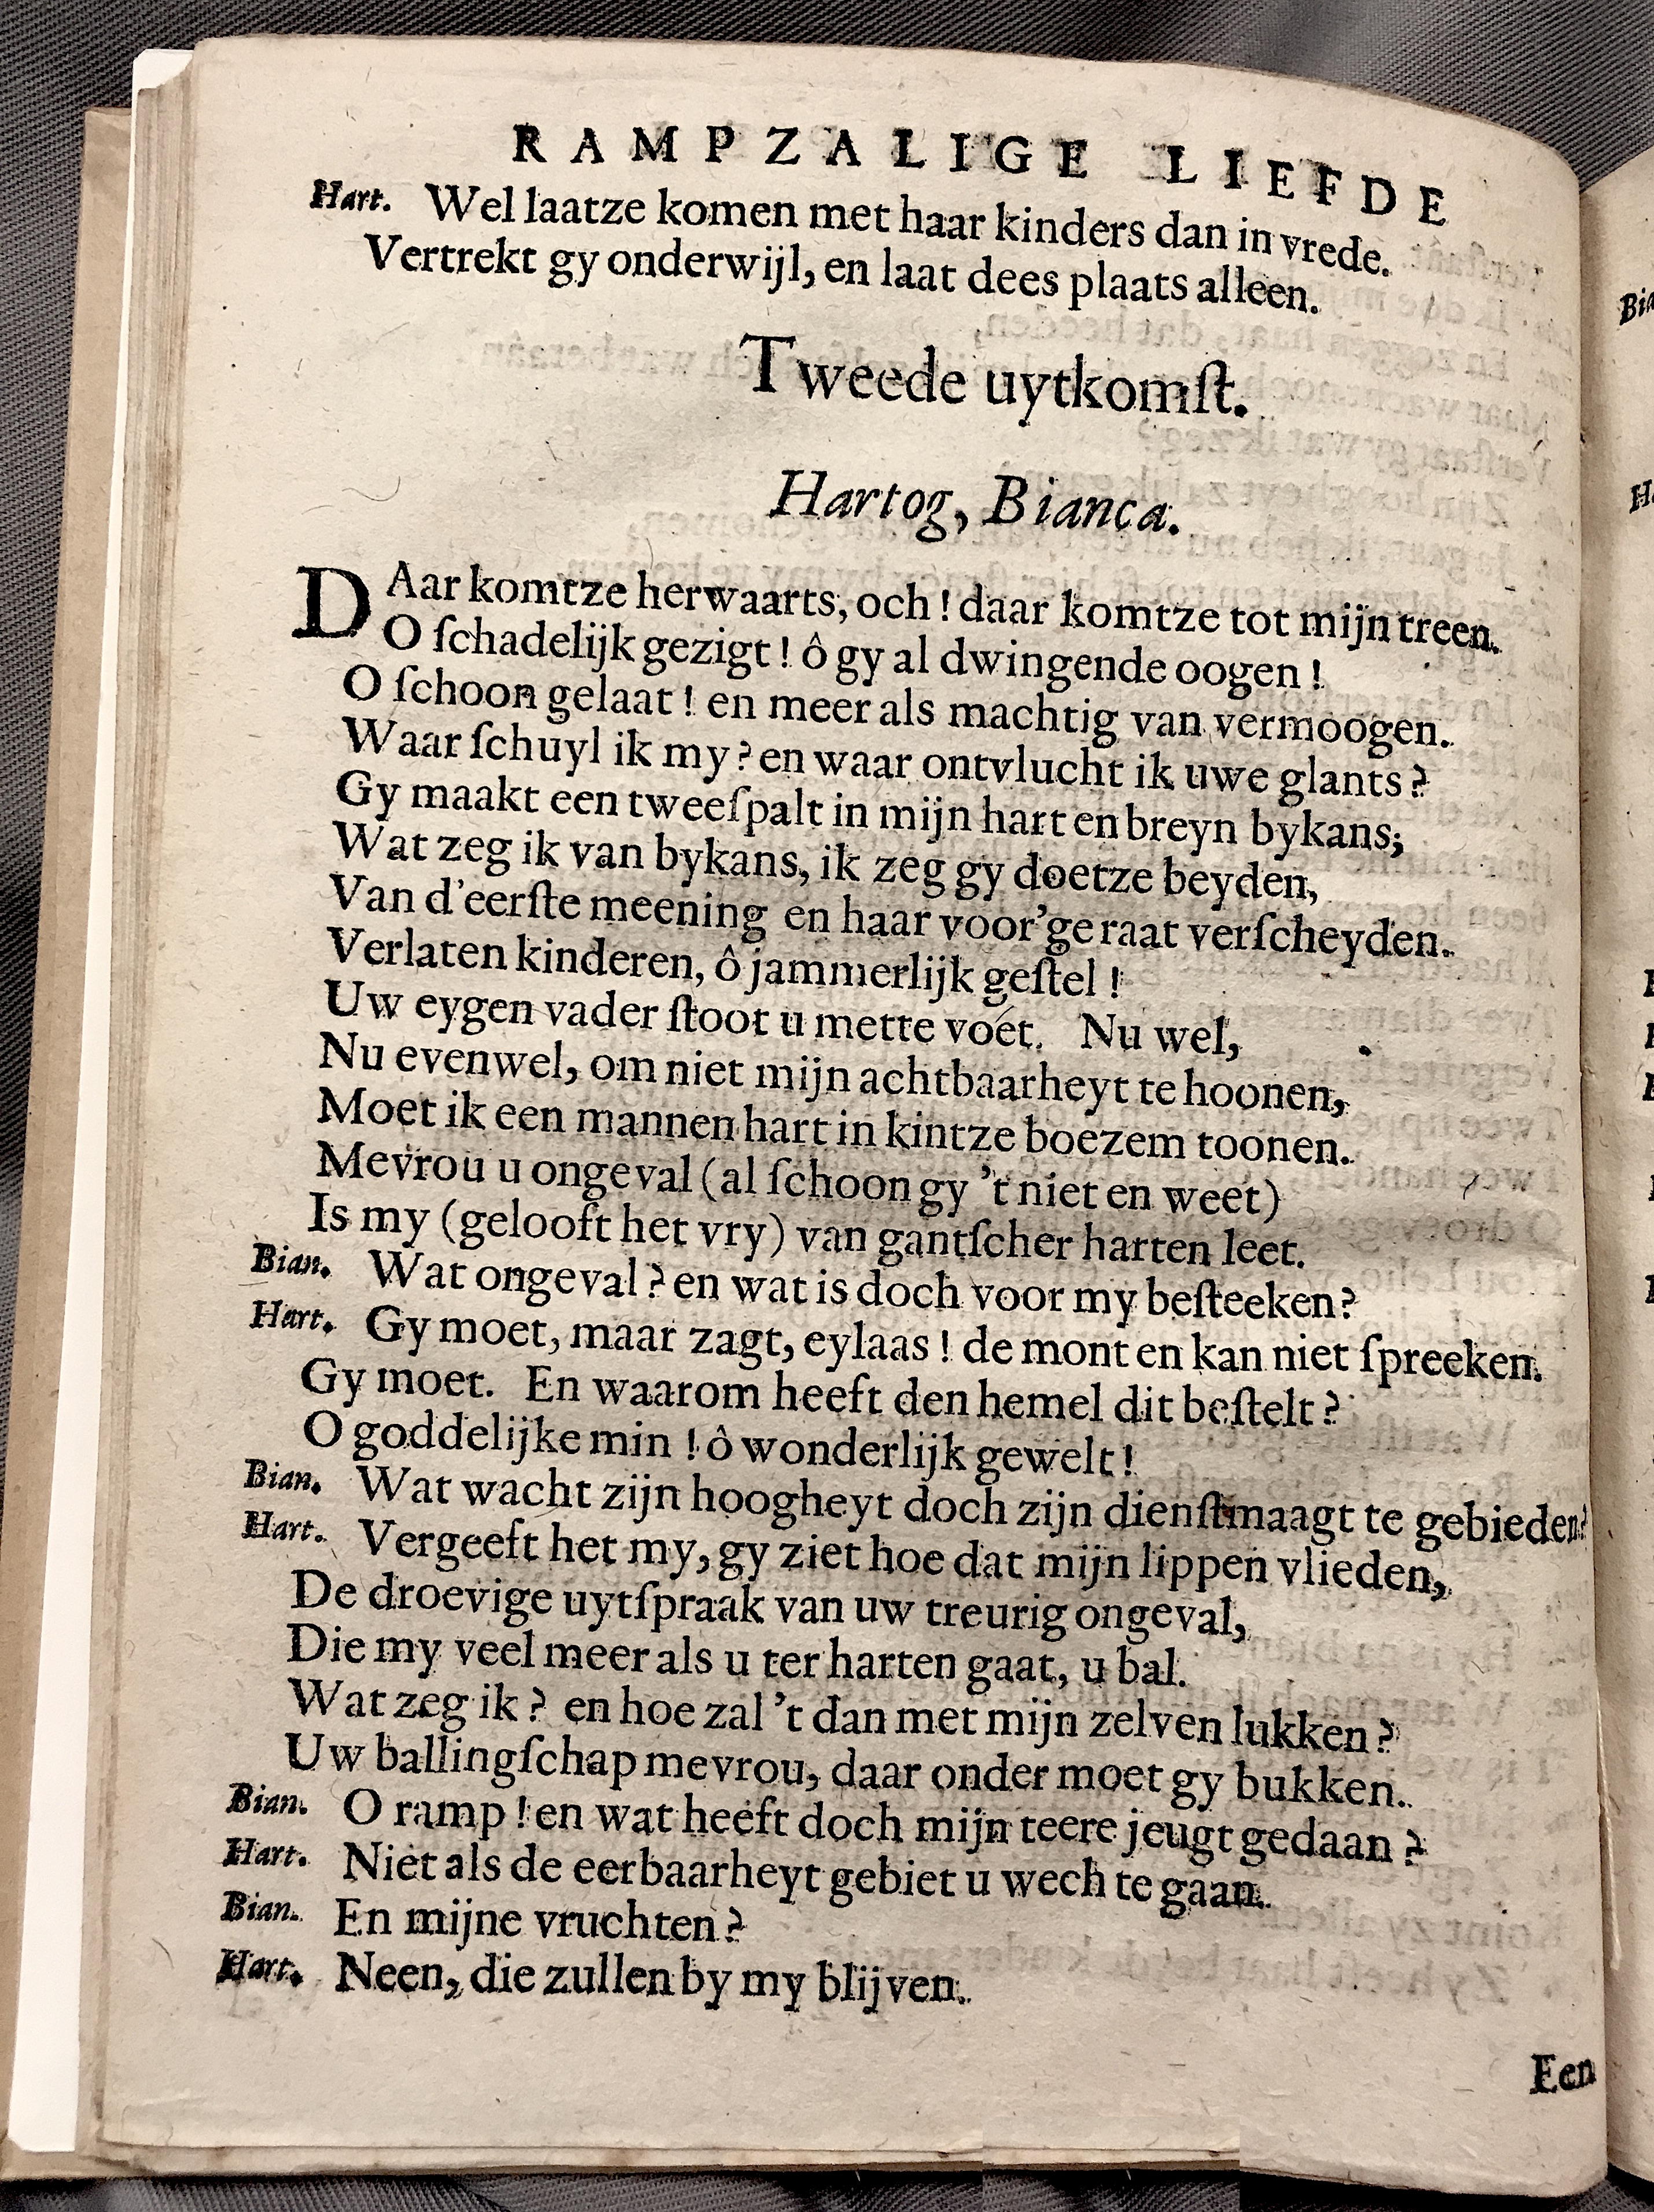 RAMPZALIGE LIEFDE
Hart. Wel laatze komen met haar kinders dan in vrede.
Vertrekt gy onderwijl, en laat dees plaats alleen.
Tweede uytkomſt.
Hartog, Bianca.
DAar komtze herwaarts, och! daar komtze tot mijn treen.
O ſchadelijk gezigt! ô gy al dwingende oogen!
O ſchoon gelaat! en meer als machtig van vermoogen.
Waar ſchuyl ik my? en waar ontvlucht ik uwe glants?
Gy maakt een tweeſpalt in mijn hart en breyn bykans;
Wat zeg ik van bykans, ik zeg gy doetze beyden,
Van d'eerſte meening en haar voor'ge raat verſcheyden.
Verlaten kinderen, ô jammerlijk geſtel!
Uw eygen vader ſtoot u mette voet. Nu wel,
Nu evenwel, om niet mijn achtbaarheyt te hoonen,
Moet ik een mannen hart in kintze boezem toonen.
Mevrou u ongeval (al ſchoon gy 't niet en weet)
Is my (gelooft het vry) van gantſcher harten leet.
Bian. Wat ongeval? en wat is doch voor my beſteeken?
Hart. Gy moet, maar zagt, eylaas! de mont en kan niet ſpreeken.
Gy moet. En waarom heeft den hemel dit beſtelt?
O goddelijke min! ô wonderlijk gewelt!
Bian. Wat wacht zijn hoogheyt doch zijn dienſtmaagt te gebieden?
Hart. Vergeeft het my, gy ziet hoe dat mijn lippen vlieden,
De droevige uytſpraak van uw treurig ongeval,
Die my veel meer als u ter harten gaat, u bal.
Wat zeg ik? en hoe zal 't dan met mijn zelven lukken?
Uw ballingſchap mevrou, daar onder moet gy bukken.
Bian. O ramp! en wat heeft doch mijn teere jeugt gedaan?
Hart. Niet als de eerbaarheyt gebiet u wech te gaan.
Bian. En mijne vruchten?
Hart. Neen, die zullen by my blijven.
Een